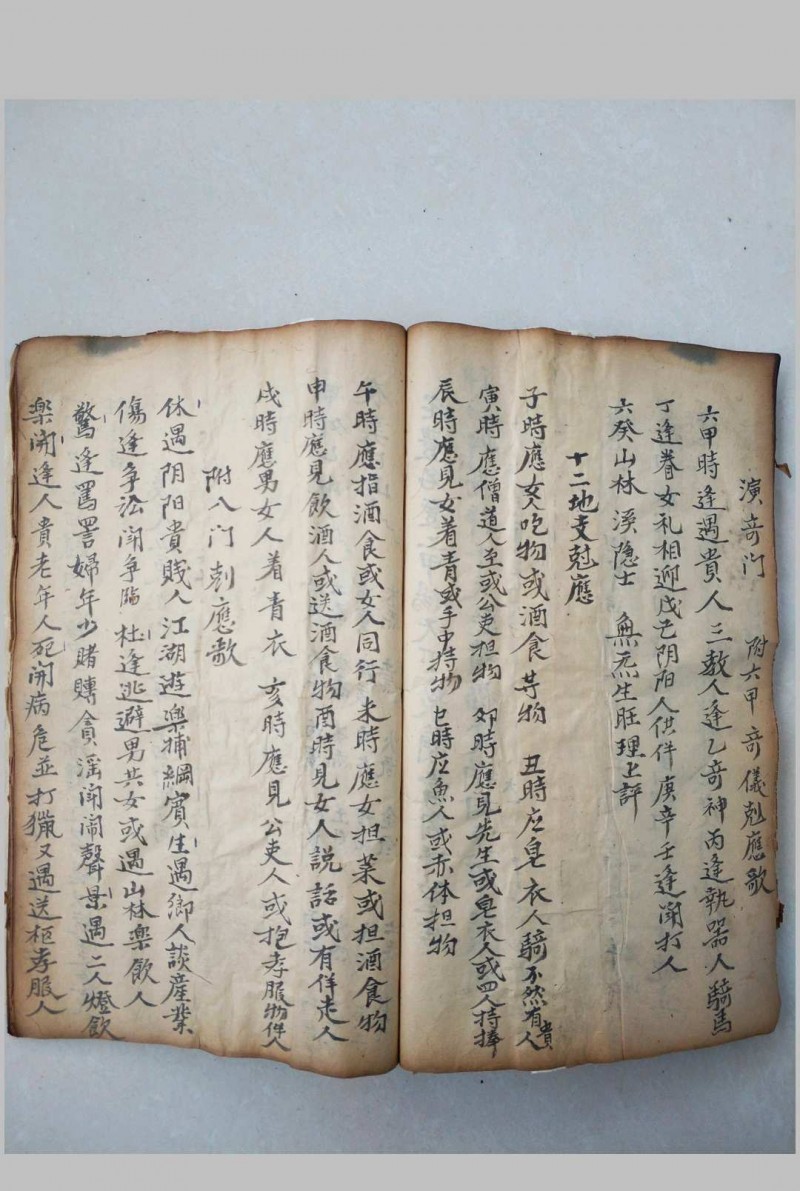 演奇门　附六甲奇儀尅應歌
六甲時逢遇貴人三教人逢乙奇神丙逢執器人騎馬
丁逢眷女礼相迎戊己阴阳人供件庚辛壬逢闹打人
六癸山林溪隐士　無炁生旺理上評
十二地支尅應
子時應女人吃物或酒食芽物　丑時应皂衣人騎不然有貴人
寅時應僧道人至或公吏担物　卯時應見先生或皂衣人或四人持捧
辰時應見女着青或手中持物　巳時应魚人或赤体担物
午時應指酒食或女人同行　未時應女担業或担酒食物
申時應見飲酒人或送酒食物酉時見女人說話或有伴走人
戌時應男女人着青衣　亥時應見公吏人或抱孝服物伴人
附八门尅應歌
休遇阴阳貴賤人江湖遊樂捕綱賓生遇鄉人談産業
傷逢爭訟闹爭臨杜逢逃避男共女或遇山林樂飲人
驚逢罵詈婦年少賭賻貪淫闹闹聲景遇二人燈飲
樂開逢人貴老年人死開病危並打獵又遇送柩孝服人